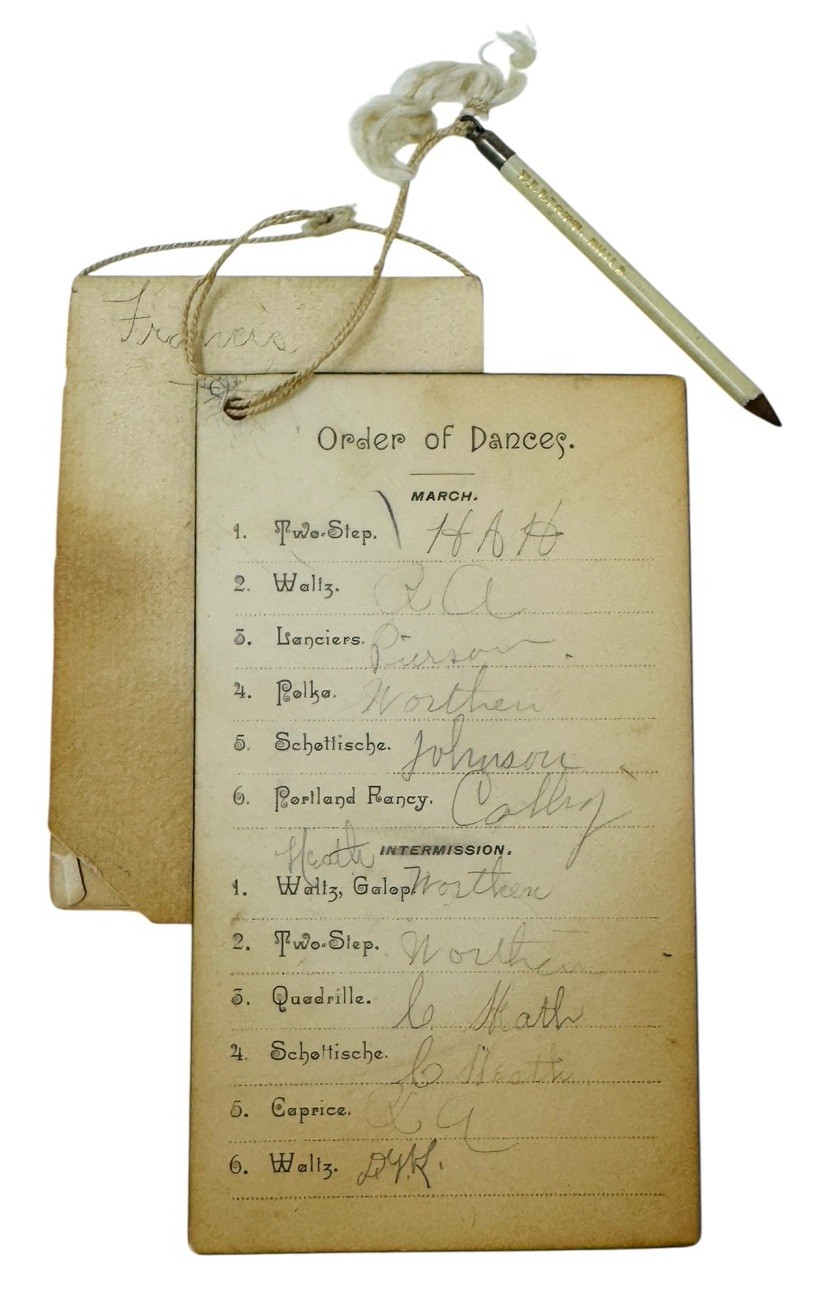 Francis
Order of Dances.
MARCH.
1. Two-Step. H A H
2. Waltz. L A
3. Lanciers. Pierson
4. Polka. Worthen
5. Schottische. Johnson
6. Portland Fancy. Colby
Heath INTERMISSION.
1. Waltz, Galop. Worthen
2. Two-Step. Worthen
3. Quadrille. C Heath
4. Schottische. C Heath
5. Caprice. L A
6. Waltz.